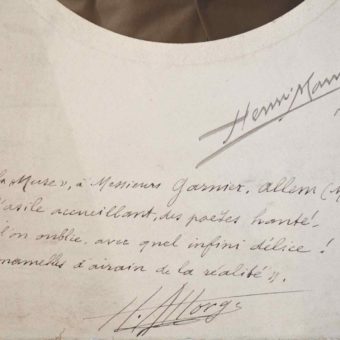 Henri
la Muse », à Messieurs Garnier, allem (M
l'asile accueillant, des poètes hanté.
l'on oublie, avec quel infini délice !
mamelles d'airain de la réalité ».
H. Allorge